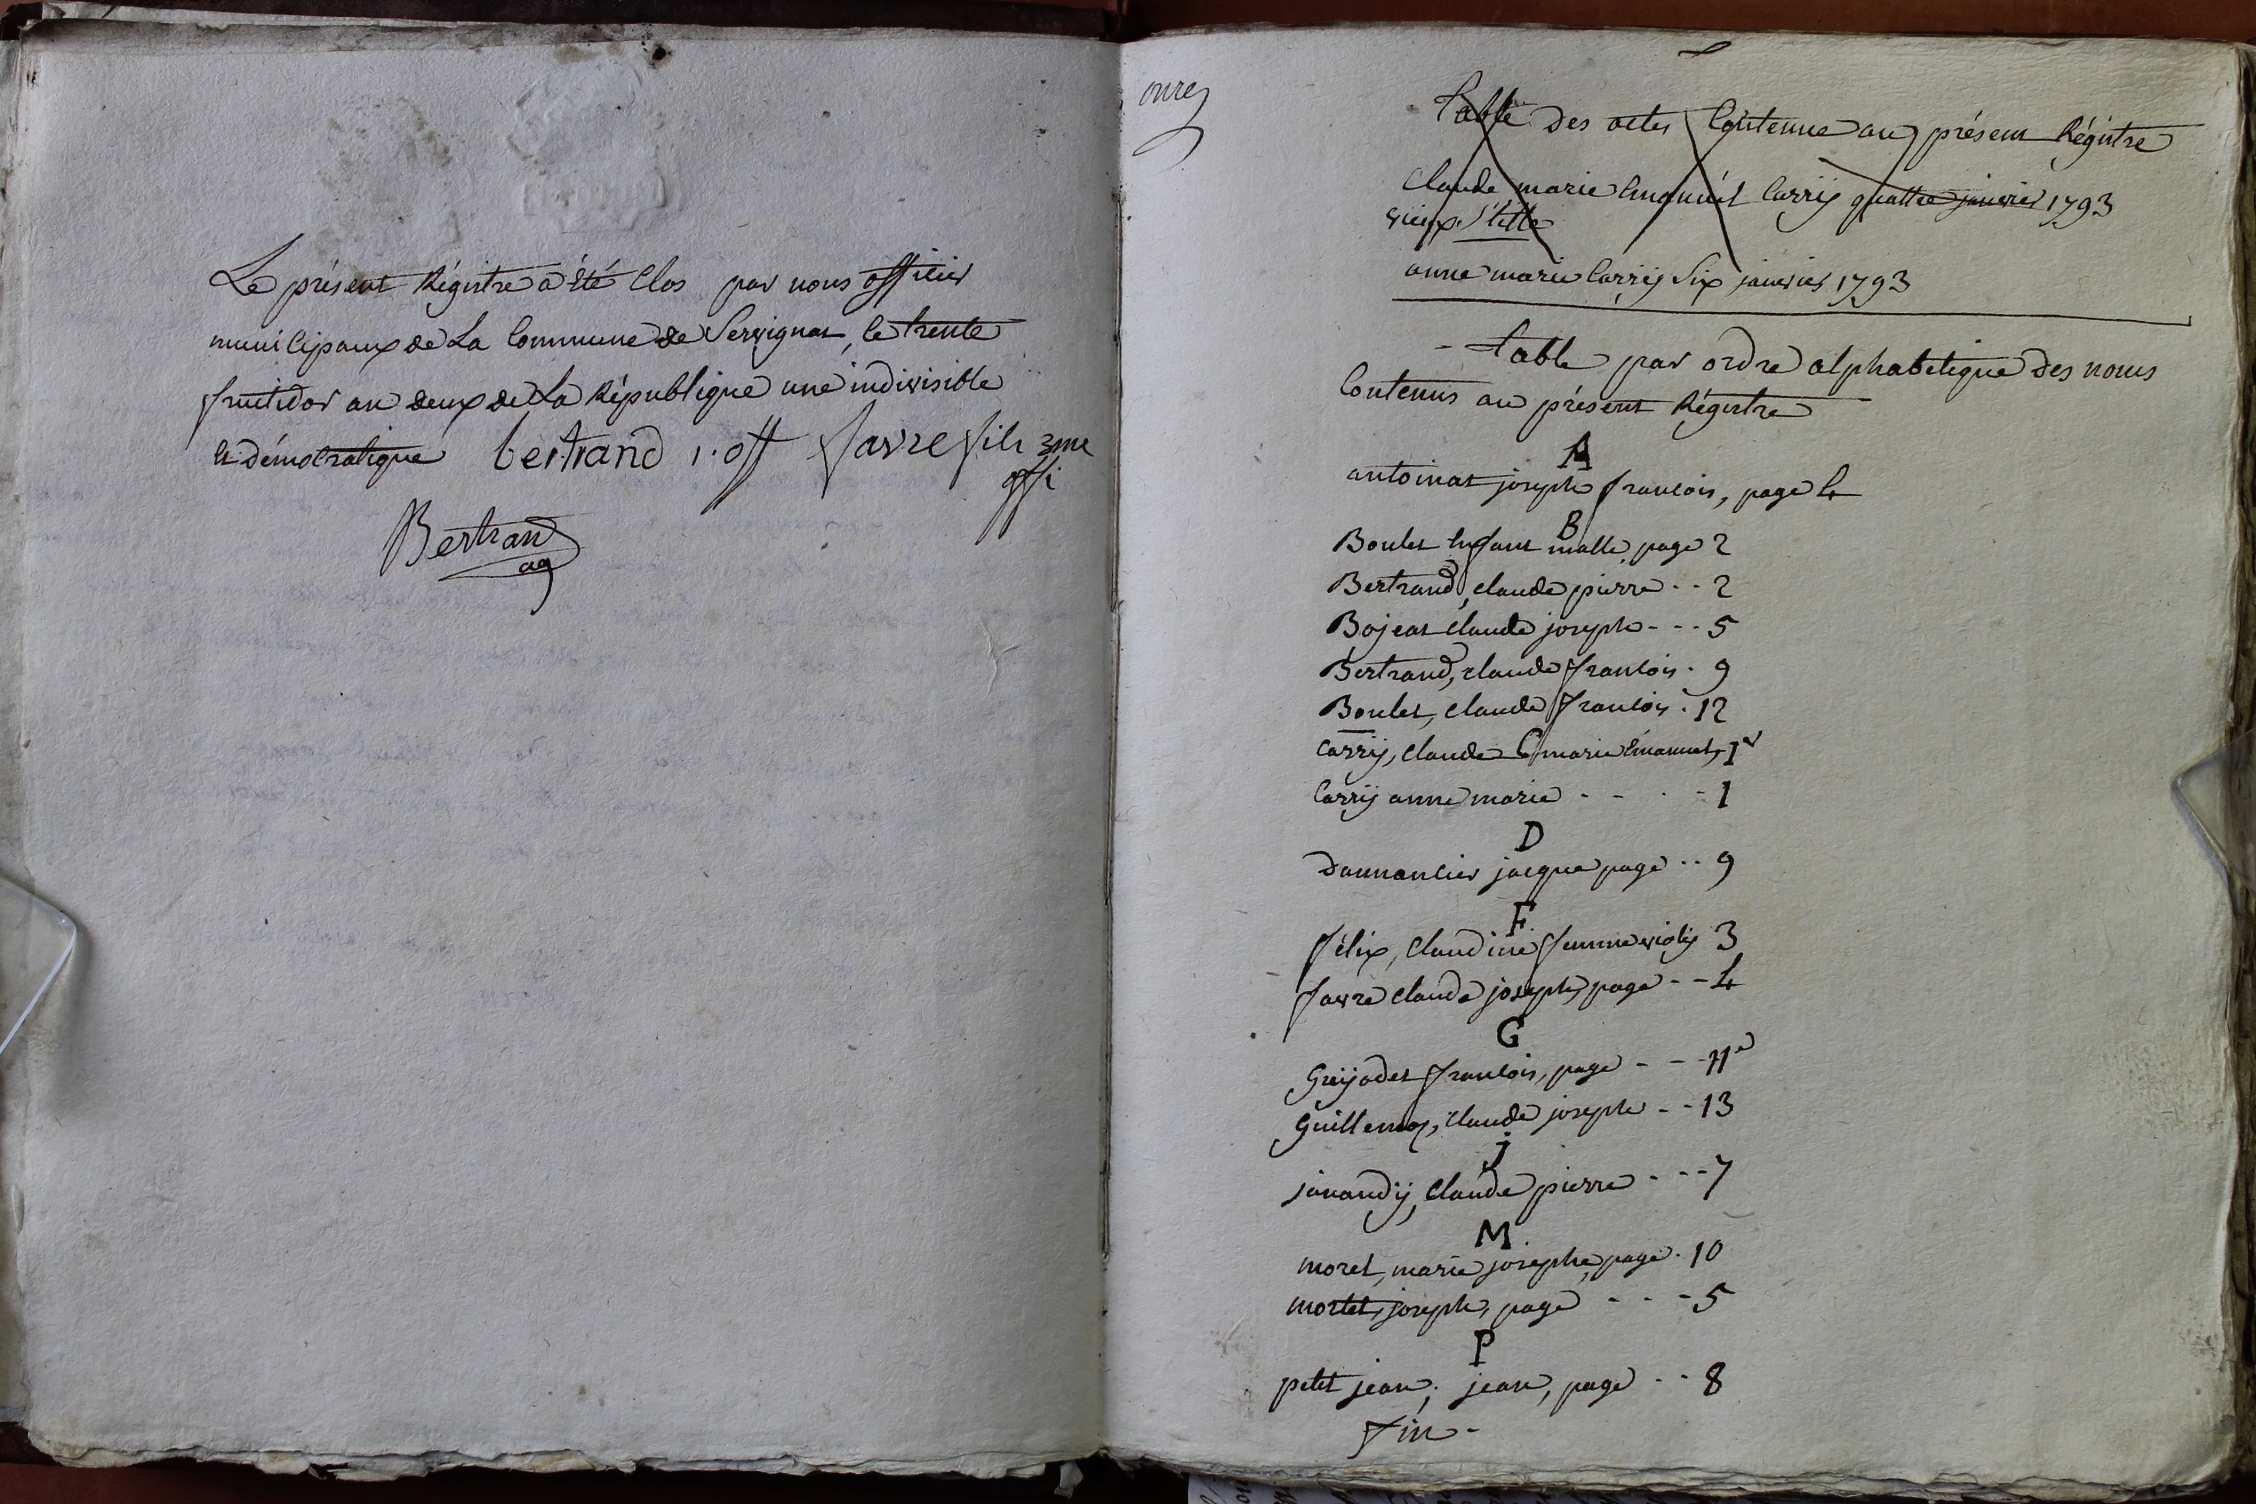 Le présent Régistre a été Clos par nous officier
municipaux de La Commune de Servignat, le trente
fructidor an deux de La République une indivisible
et démocratique bertrand 1. off favre fils 3me
offi
Bertrand
ag
onze
table des actes Contenue au présent Régistre
Claude marie Emanuel Carrij quattre janvier 1793
vieux stille
anne marie Carrij Six janvier 1793
table par ordre alphabetique des noms
Contenus au présent Régistre
A
antoinat joseph francois, page 4
B
Boulet Enfant malle page 2
Bertrand, claude pierre - - 2
Bojeat Claude joseph - - - 5
Bertrand, claude francois . 9
Boulet, Claude francois . 12
C
Carrij, Claude marie Emanuel, 1er
Carrij anne marie - - . - 1
D
dannancier jacque page - - 9
F
félix, Claudine femme violij 3
favre Claude joseph, page - - 4
G
Greijadet francois, page - - - 11e
Guillemoz, Claude joseph - - 13
j
janaudij, Claude pierre - - - 7
M
moret, marie josephe, page . 10
mortet, joseph, page - - - 5
P
petit jean, jean, page - - 8
fin -